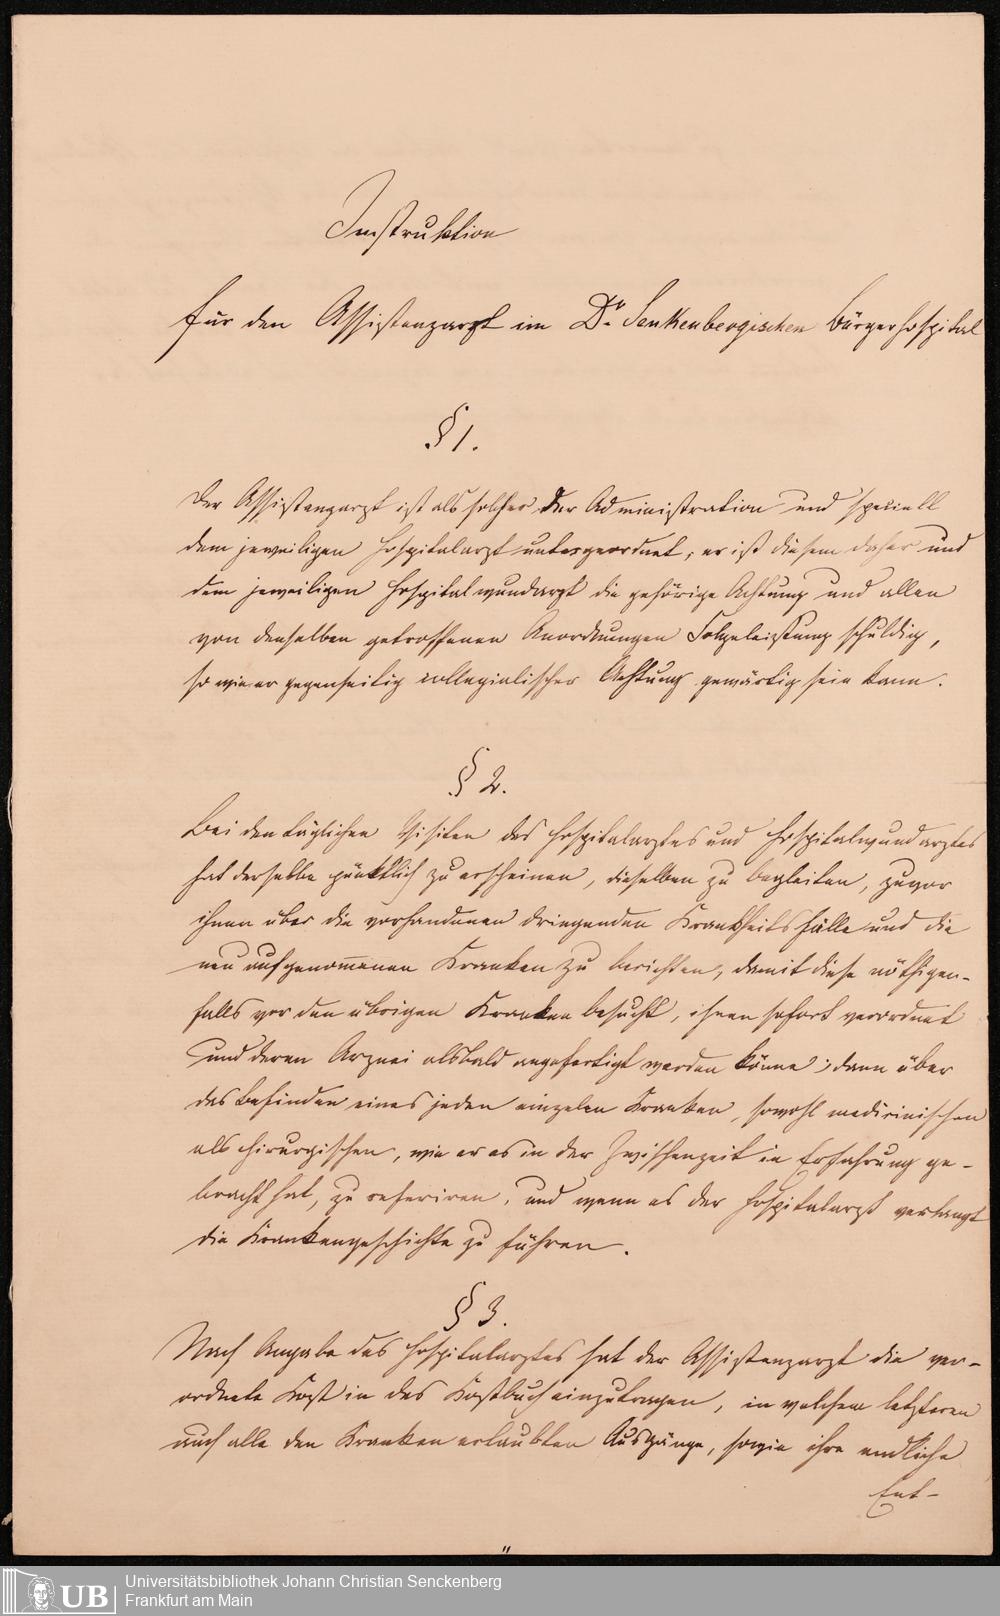 Instruktion
für den Assistenzarzt im Dr. Senkenbergischen Bürgerhospital
§ 1.
Der Assistenzarzt ist als solcher der Administration und speciell
dem jeweiligen Hospitalarzt untergeordnet; er ist diesem daher und
dem jeweiligen Hospitalwundarzt die gehörige Achtung und allen
von denselben getroffenen Anordnungen Folgeleistung schuldig,
so wie er gegenseitig collegialischer Achtung gewärtig sein kann.
§ 2.
Bei den täglichen Visiten des Hospitalarztes und Hospitalwundarztes
hat derselbe pünktlich zu erscheinen, dieselben zu begleiten, zuvor
ihnen über die vorhandenen dringenden Krankheitsfälle und die
neu aufgenom̅enen Kranken zu berichten, damit diese nöthigen-
falls vor den übrigen Kranken besucht, ihnen sofort verordnet
und deren Arznei alsbald angefertigt werden könne; dann über
das Befinden eines jeden einzelen Kranken, sowohl medicinischen
als chirurgischen, wie er es in der Zwischenzeit in Erfahrung ge-
bracht hat, zu referiren, und wenn es der Hospitalarzt verlangt
die Krankengeschichte zu führen.
§ 3.
Nach Angabe des Hospitalarztes hat der Assistenzarzt die ver-
ordnete Kost in das Kostbuch einzutragen, in welchem letzteren
auch alle den Kranken erlaubten Ausgänge, sowie ihre endliche
Ent-
UB
Universitätsbibliothek Johann Christian Senckenberg
Frankfurt am Main